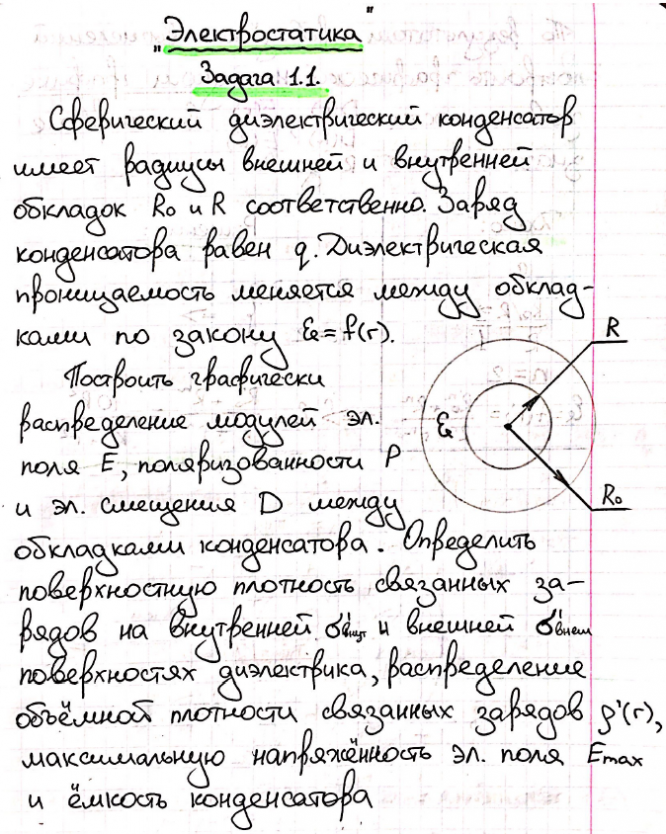 "Электростатика"
Задача 1.1.
Сферический диэлектрический конденсатор
имеет радиусы внешней и внутренней
обкладок R₀ и R соответственно. Заряд
конденсатора равен q. Диэлектрическая
проницаемость меняется между обклад-
ками по закону ε = f(r).
Построить графически
распределение модулей эл.
поля E, поляризованности P
и эл. смещения D между
обкладками конденсатора. Определить
поверхностную плотность связанных за-
рядов на внутренней σ'внут и внешней σ'внеш
поверхностях диэлектрика, распределение
объёмной плотности связанных зарядов ρ'(r),
максимальную напряжённость эл. поля Emax
и ёмкость конденсатора
R
ε
R₀